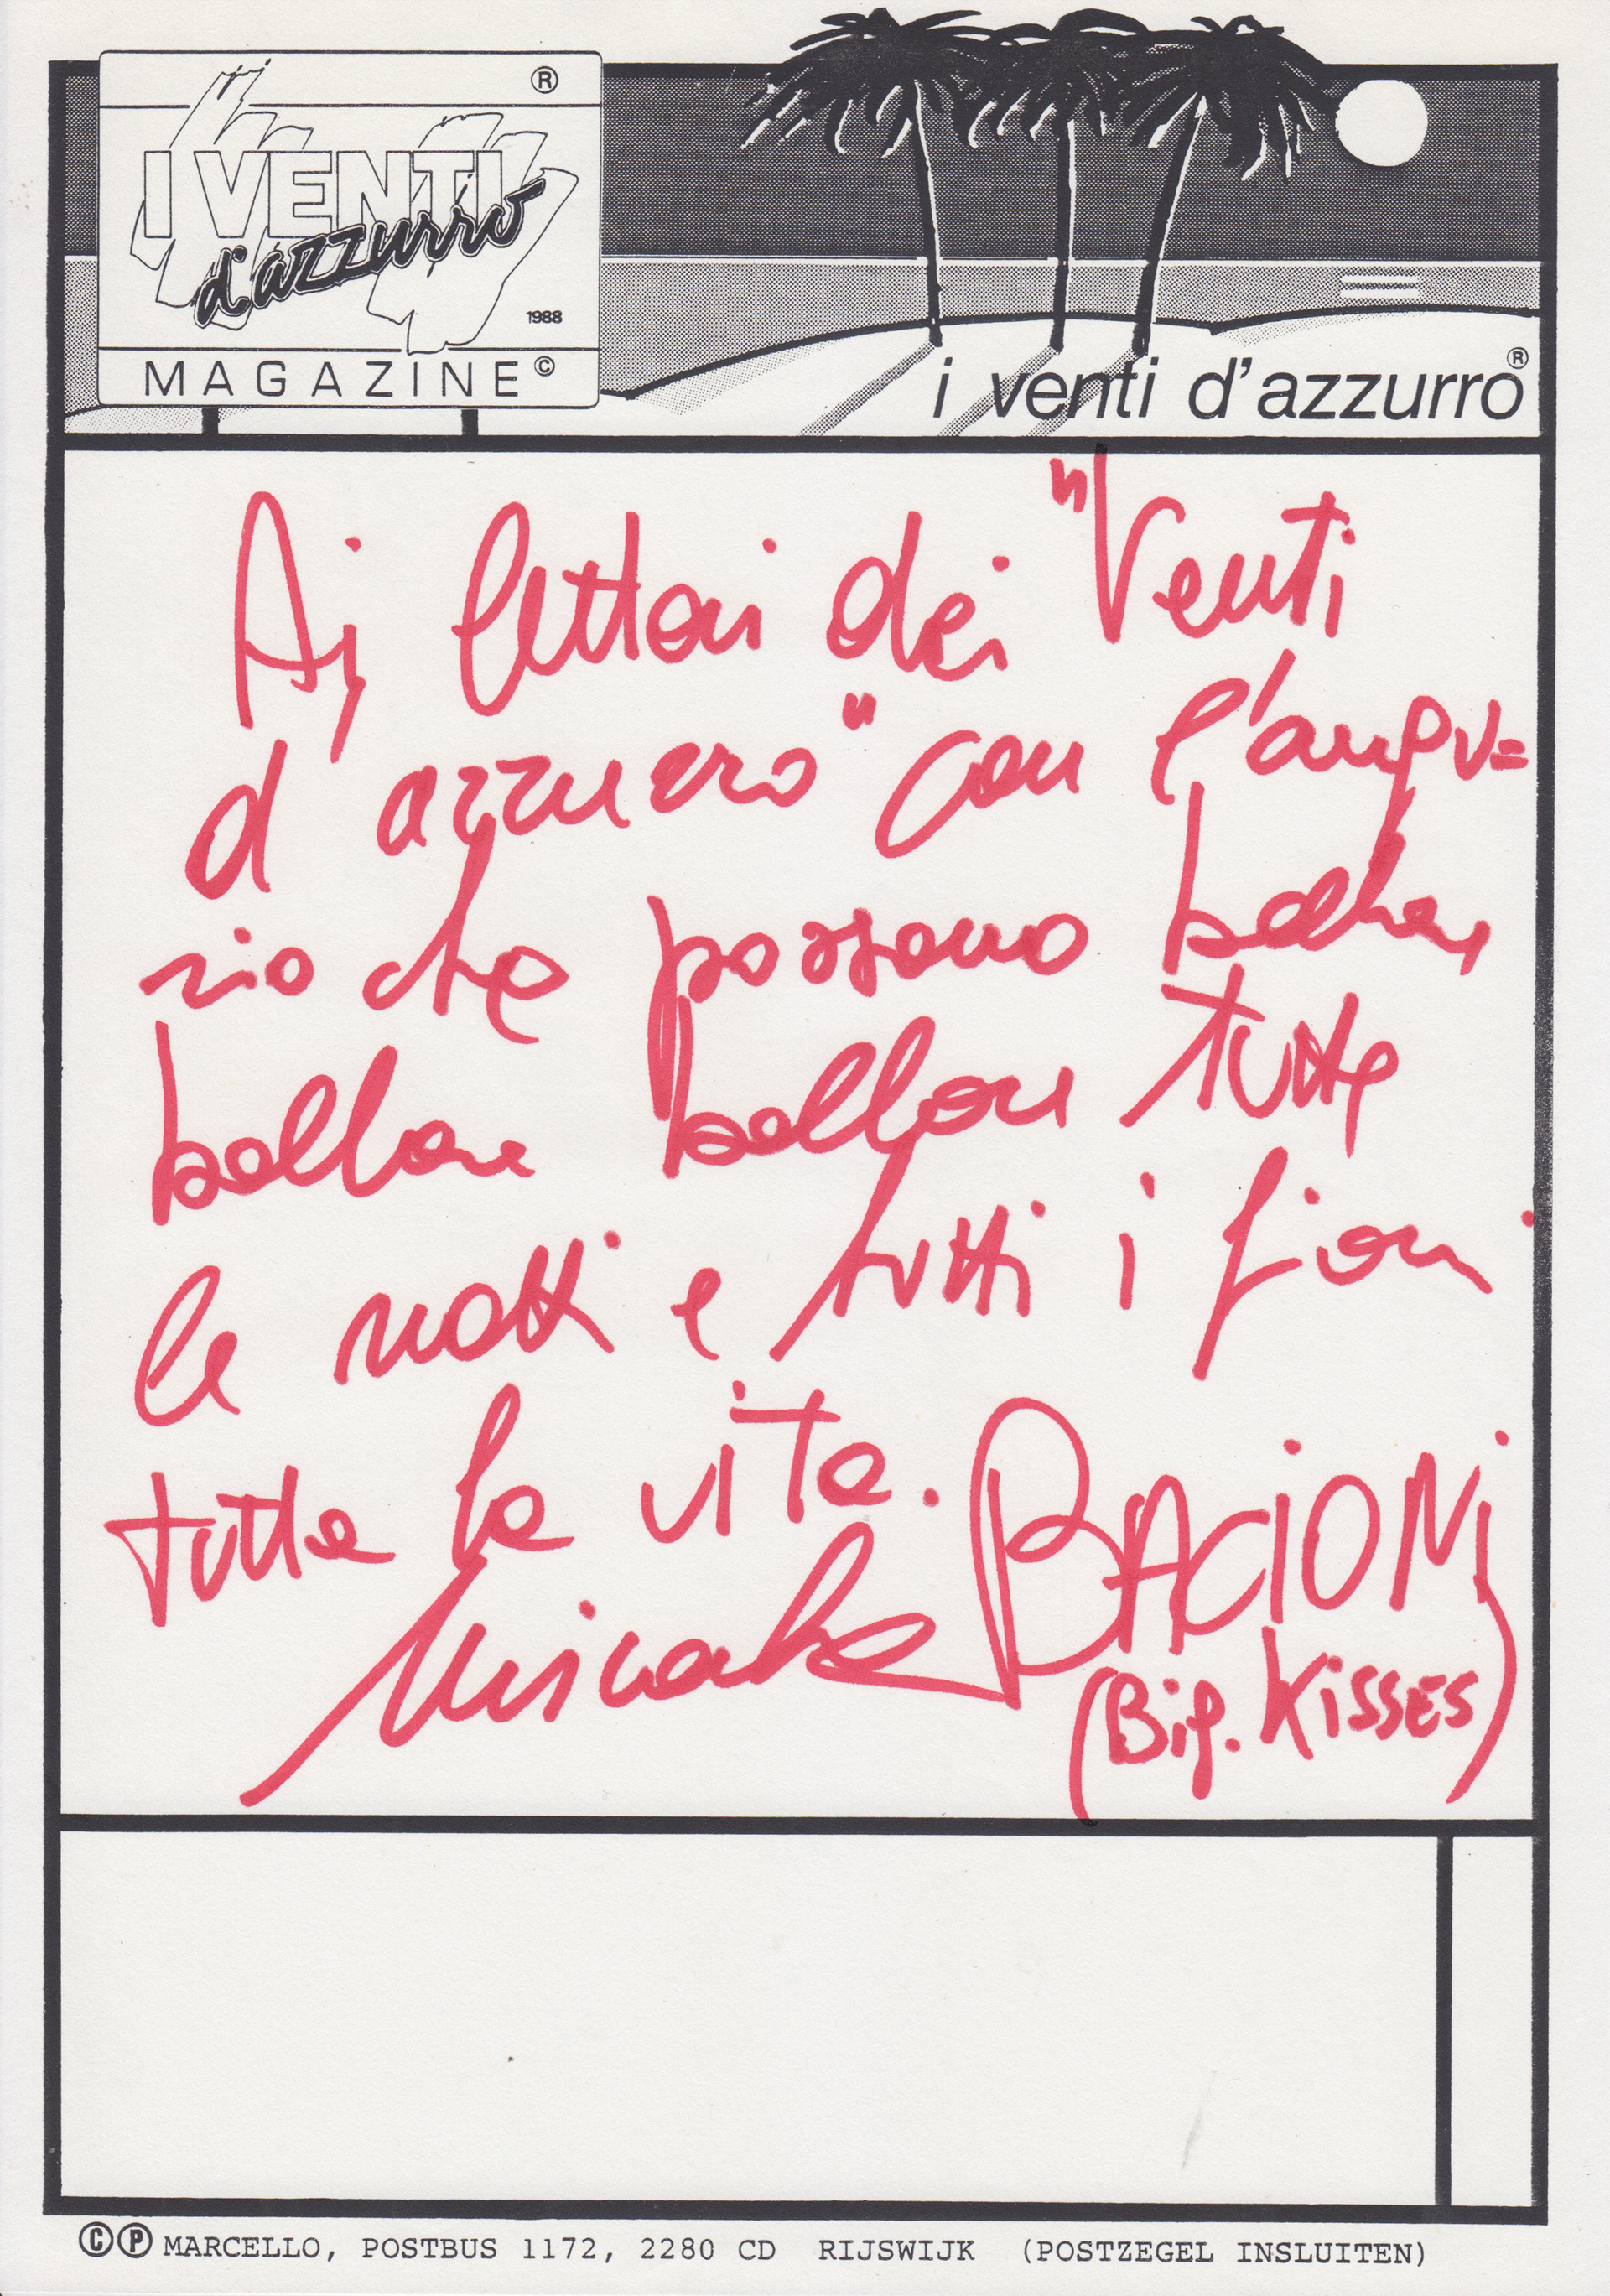 ®
I VENTI
d'azzurro
1988
MAGAZINE©
i venti d'azzurro®
Ai lettori dei "Venti
d'azzurro" con l'augu=
rio che possano ballare
ballare ballare tutte
le notti e tutti i giorni
tutta la vita. BACIONI
(Big. KISSES)
©Ⓟ MARCELLO, POSTBUS 1172, 2280 CD RIJSWIJK (POSTZEGEL INSLUITEN)